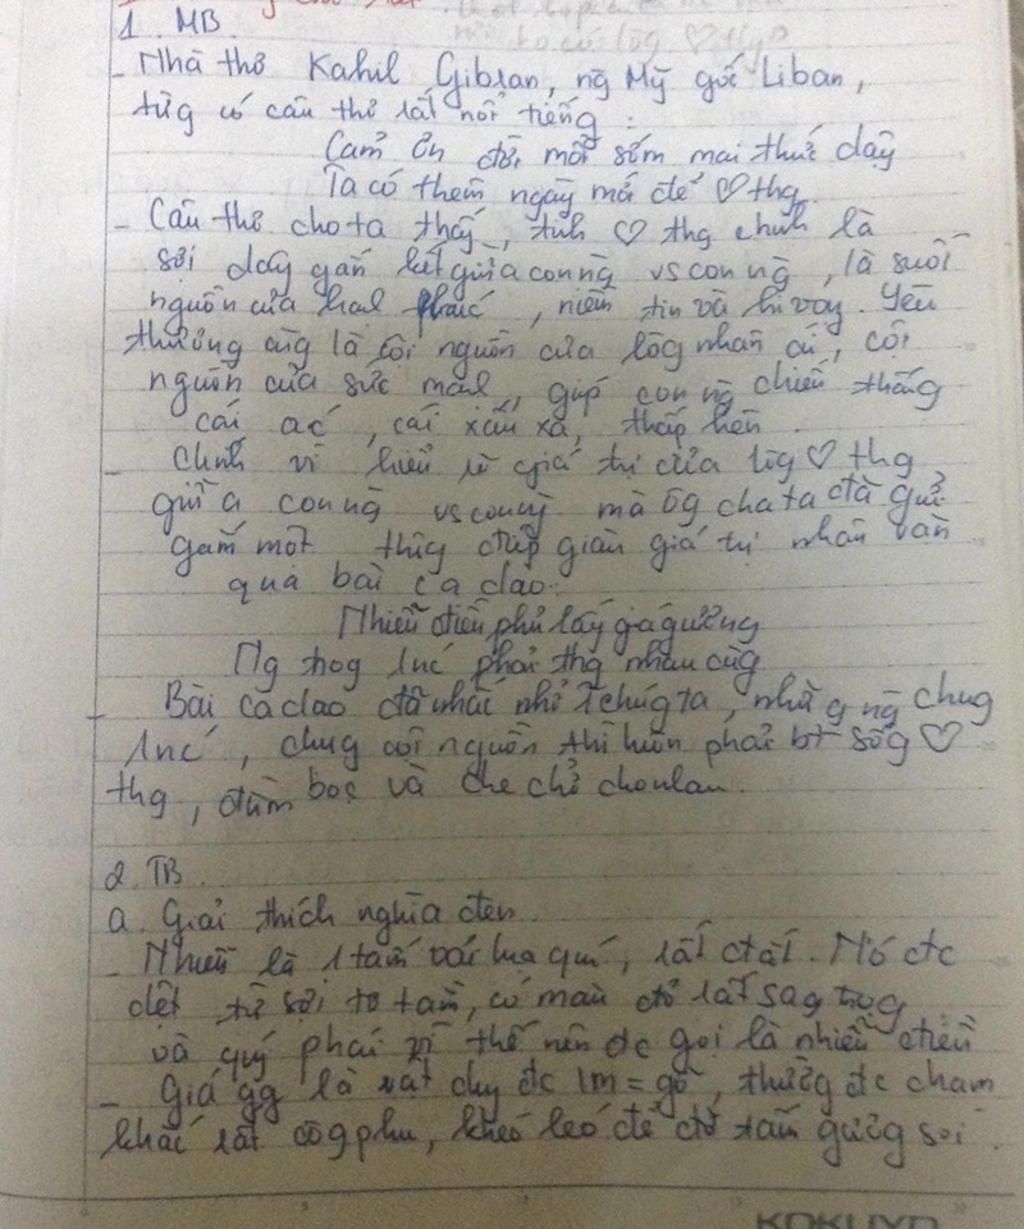 1. MB.
- Nhà thơ Kahlil Gibran, ng Mỹ gốc Liban,
từg có câu thơ rất nổi tiếng :
Cảm ơn đời mỗi sớm mai thức dậy
Ta có thêm ngày mới để ♡ thg.
- Câu thơ cho ta thấy, tình ♡ thg chính là
sợi dây gắn kết giữa con ng vs con ng, là suối
nguồn của hạnh phúc, niềm tin và hi vọg. Yêu
thương cũg là cội nguồn của lòg nhân ái, cội
nguồn của sức mạnh, giúp con ng chiến thắng
cái ác, cái xấu xa, thấp hèn.
- Chính vì hiểu rõ giá trị của lòg ♡ thg
giữa con ng vs con ng mà ôg cha ta đã gửi
gắm một thôg điệp giàu giá trị nhân văn
qua bài ca dao:
Nhiễu điều phủ lấy giá gương
Ng trog 1 nc phải thg nhau cùg
- Bài ca dao đã nhắc nhở chúg ta, nhữg ng chug
1 nc, chug cội nguồn thì luôn phải bt sốg ♡
thg, đùm bọc và che chở cho nhau.
2. TB.
a. Giải thích nghĩa đen.
- Nhiễu là 1 tấm vải lụa quý, rất đắt. Nó đc
dệt từ sợi tơ tằm, có màu đỏ rất sag trọg
và quý phái vì thế nên đc gọi là nhiễu điều
- Giá gg là vật dụg đc làm = gỗ, thườg đc chạm
khắc rất côg phu, khéo léo để đỡ tấm gươg soi.
KOKUYO